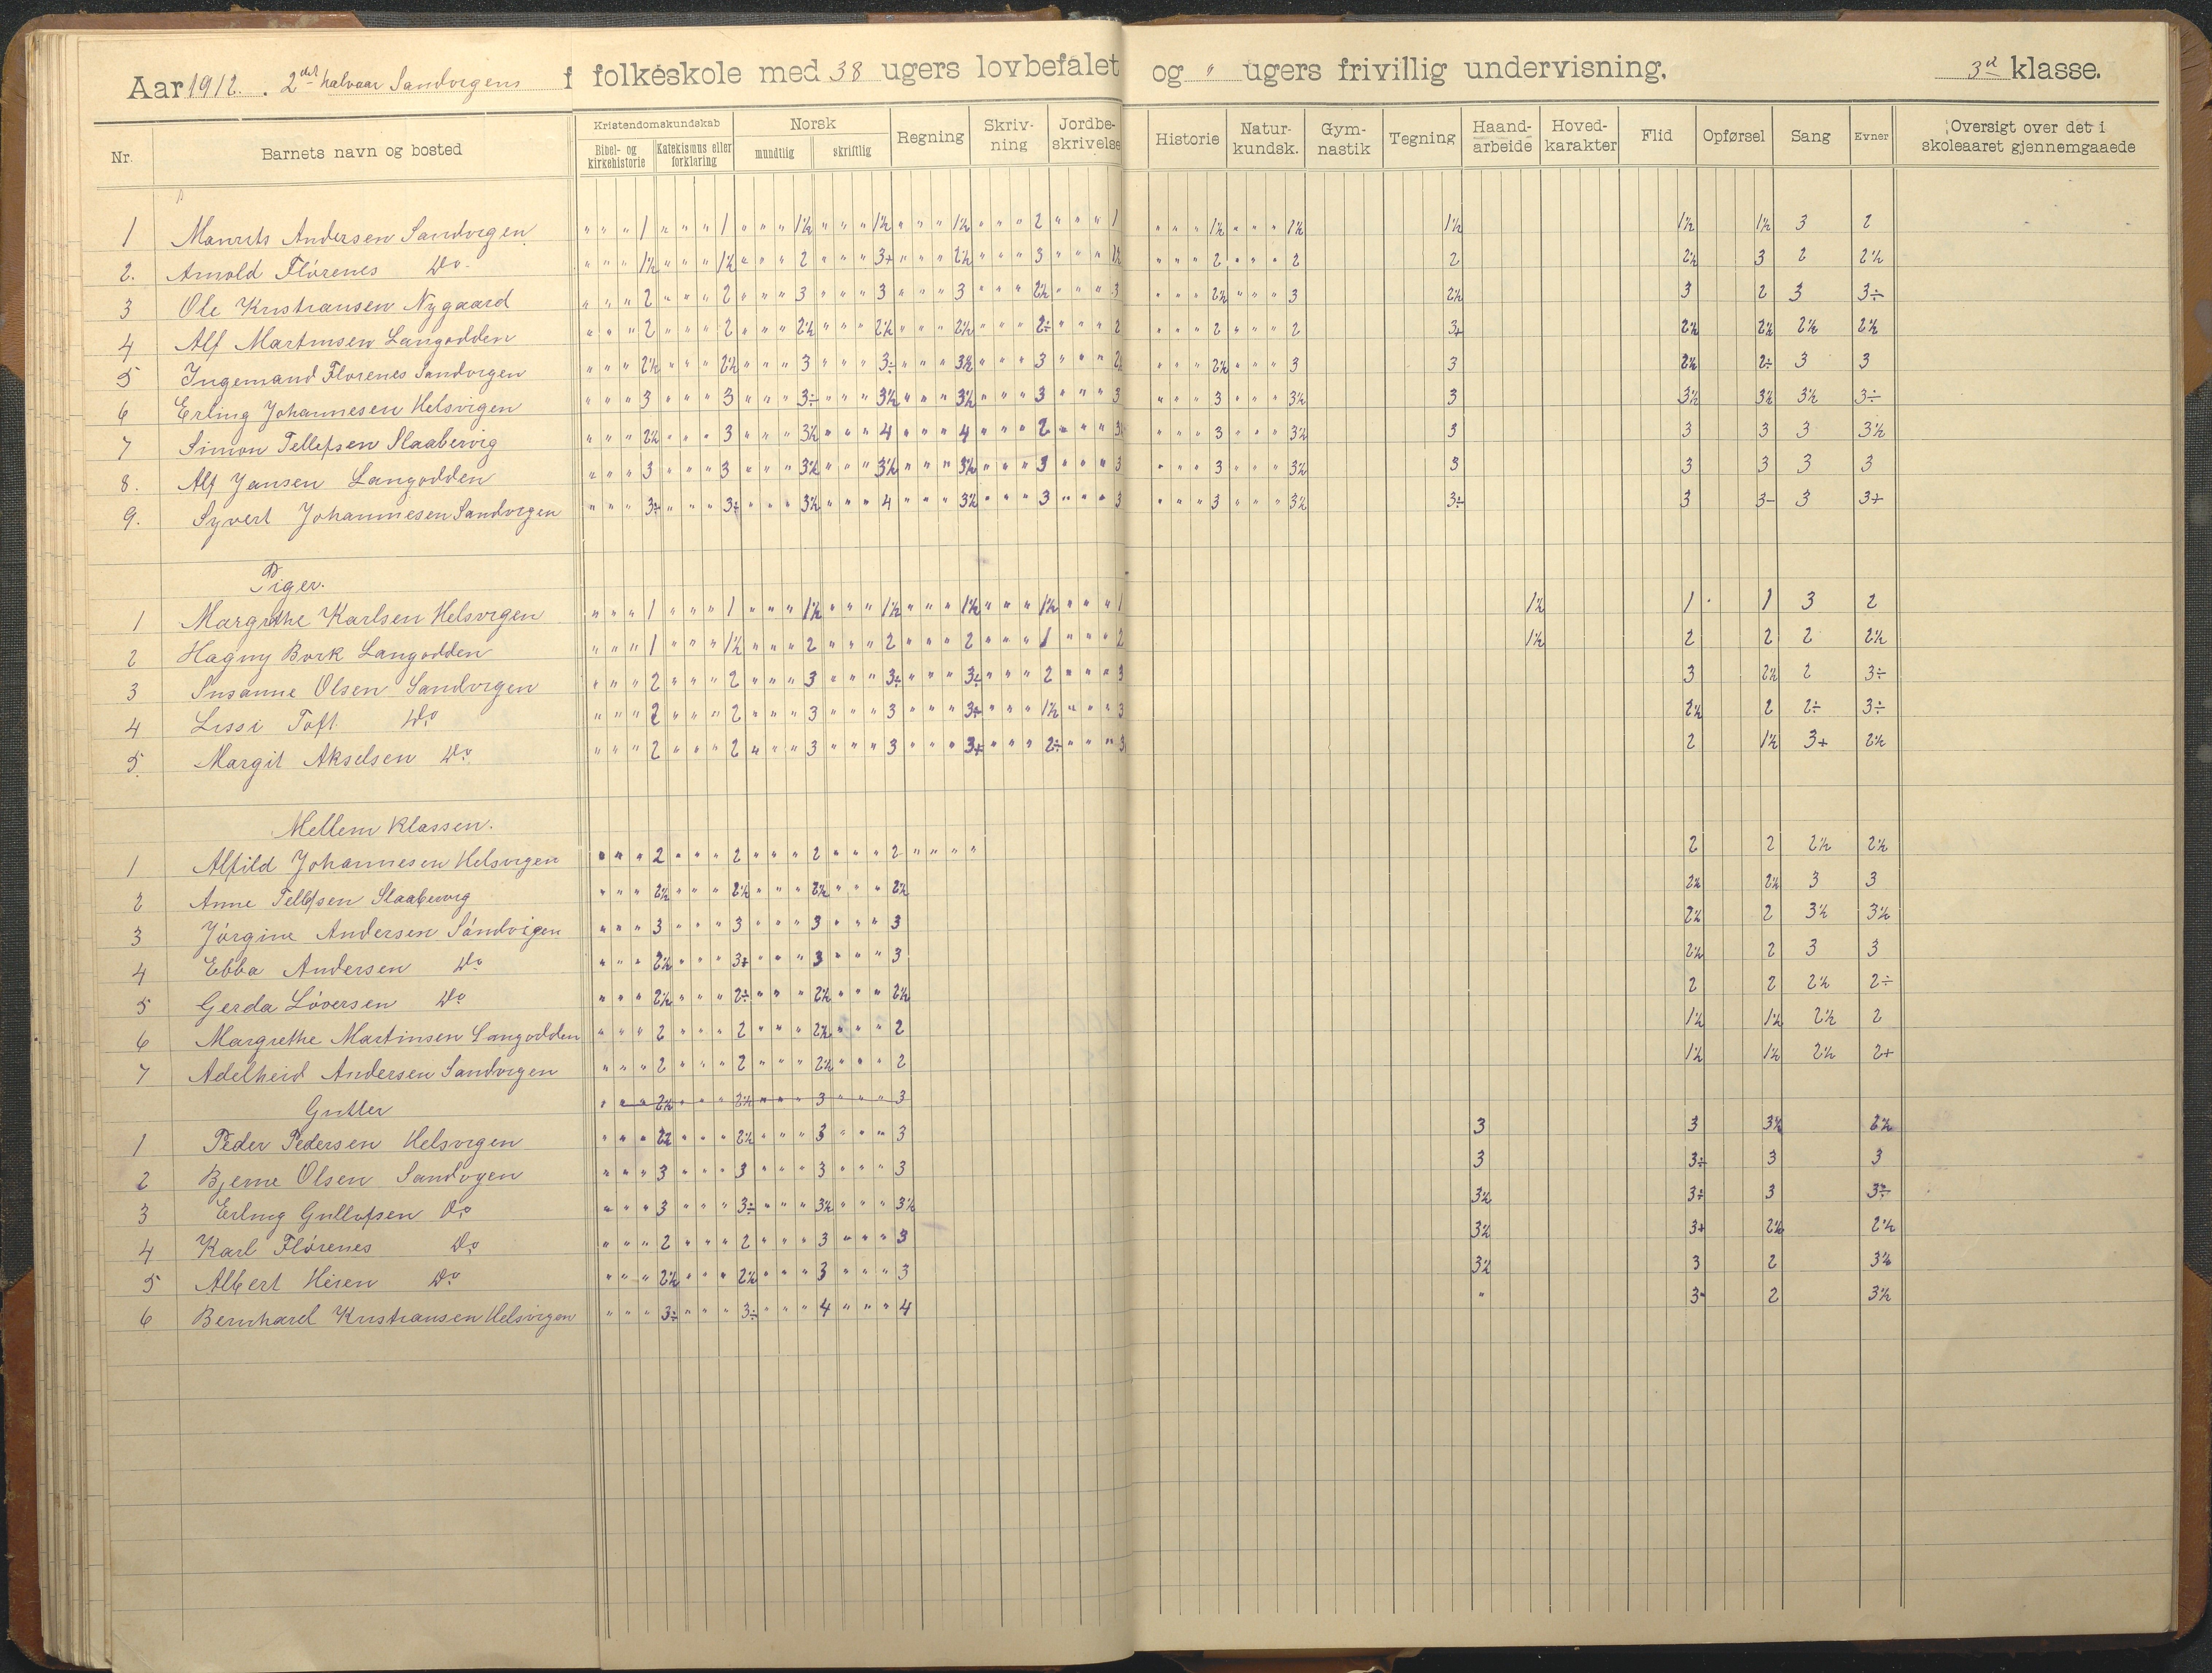 Aar 1912. 2det halvaar Sandvigens f folkeskole med 38 ugers lovbefalet og " ugers frivillig undervisning. 3d klasse.
Nr. Barnets navn og bosted Kristendomskundskab Bibel- og kirkehistorie Katekismus eller forklaring Norsk mundtlig skriftlig Regning Skriv-ning Jordbe-skrivelse Historie Natur-kundsk. Gym-nastik Tegning Haand-arbeide Hoved-karakter Flid Opførsel Sang Evner Oversigt over det i skoleaaret gjennemgaaede
1 Andersen Sandvigen " " " 1 " " " 1 " " " 1½ " " " 1½ " " " 1½ " " " 2 " " " 1 " " " 1½ " " " 1½ 1½ 1½ 1½ 3 2
2. Arnold Flörenes Do. " " " 1½ " " " 1½ " " " 2 " " " 3+ " " " 2½ " " " 3 " " " 1½ " " " 2 " " " 2 2 2½ 3 2 2½
3 Ole Kristiansen Nygaard " " " 2 " " " 2 " " " 3 " " " 3 " " " 3 " " " 2½ " " " 3 " " " 2½ " " " 3 2½ 3 2 3 3÷
4 Alf Martinsen Langodden " " " 2 " " " 2 " " " 2½ " " " 2½ " " " 2½ " " " 2÷ " " " 2 " " " 2 " " " 2 3+ 2½ 2½ 2½ 2½
5 Ingemand Florenes Sandvigen " " " 2½ " " " 2½ " " " 3 " " " 3÷ " " " 3½ " " " 3 " " " 2 " " " 2½ " " " 3 3 2½ 2÷ 3 3
6 Erling Johannesen Helsvigen " " " 3 " " " 3 " " " 3÷ " " " 3½ " " " 3½ " " " 3 " " " 3 " " " 3 " " " 3½ 3 3½ 3½ 3½ 3÷
7 Simon Tellefsen Slaabervig " " " 2½ " " " 3 " " " 3½ " " " 4 " " " 4 " " " 2 " " " 3 " " " 3 " " " 3½ 3 3 3 3 3½
8. Alf Jansen Langodden " " " 3 " " " 3 " " " 3½ " " " 3½ " " " 3½ " " " 3 " " " 3 " " " 3 " " " 3½ 3 3 3 3 3
9. Syvert Johannesen Sandvigen " " " 3÷ " " " 3÷ " " " 3½ " " " 4 " " " 3½ " " " 3 " " " 3 " " " 3 " " " 3½ 3÷ 3 3- 3 3+
Piger.
1 Margrethe Karlsen Helsvigen " " " 1 " " " 1 " " " 1½ " " " 1½ " " " 1½ " " " 1½ " " " 1 1½ 1 1 3 2
2 Hagny Bork Langodden " " " 1 " " " 1½ " " " 2 " " " 2 " " " 2 " " " 1 " " " 2 1½ 2 2 2 2½
3 Susanne Olsen Sandvigen " " " 2 " " " 2 " " " 3 " " " 3÷ " " " 3÷ " " " 2 " " " 3 3 2½ 2 3÷
4 Lissi Toft Do " " " 2 " " " 2 " " " 3 " " " 3 " " " 3+ " " " 1½ " " " 3 2½ 2 2÷ 3÷
5. Margit Akselsen Do " " " 2 " " " 2 " " " 3 " " " 3 " " " 3+ " " " 2÷ " " " 3 2 1½ 3+ 2½
Mellem Klassen.
1 Alfild Johannesen Helsvigen " " " 2 " " " 2 " " " 2 " " " 2 " " " " 2 2 2½ 2½
2 Anne Tellefsen Slaabervig " " " 2½ " " " 2½ " " " 2½ " " " 2½ 2½ 2½ 3 3
3 Jörgine Andersen Sandvigen " " " 3 " " " 3 " " " 3 " " " 3 2½ 2 3½ 3½
4 Ebba Andersen Do " " " 2½ " " " 3+ " " " 3 " " " 3 2½ 2 3 3
5 Gerda Löversen Do " " " 2½ " " " 2÷ " " " 2½ " " " 2½ 2 2 2½ 2÷
6 Margrethe Martinsen Langodden " " " 2 " " " 2 " " " 2½ " " " 2 1½ 1½ 2½ 2
7 Adelheid Andersen Sandvigen " " " 2 " " " 2 " " " 2½ " " " 2 1½ 1½ 2½ 2+
Gutter " " " 2½ " " " 2½ " " " 3 " " " 3
1 Peder Pedersen Helsvigen " " " 2½ " " " 2½ " " " 3 " " " 3 3 3 3½ 2½
2 Bjerne Olsen Sandvigen " " " 3 " " " 3 " " " 3 " " " 3 3 3÷ 3 3
3 Erling Gullefsen Do " " " 3 " " " 3÷ " " " 3½ " " " 3½ 3½ 3÷ 3 3÷
4 Karl Flörenes Do " " " 2 " " " 2 " " " 3 " " " 3 3½ 3+ 2½ 2½
5 Albert Heien Do " " " 2½ " " " 2½ " " " 3 " " " 3 3½ 3 2 3½
6 Bernhard Kristiansen Helsvigen " " " 3÷ " " " 3÷ " " " 4 " " " 4 " 3- 2 3½